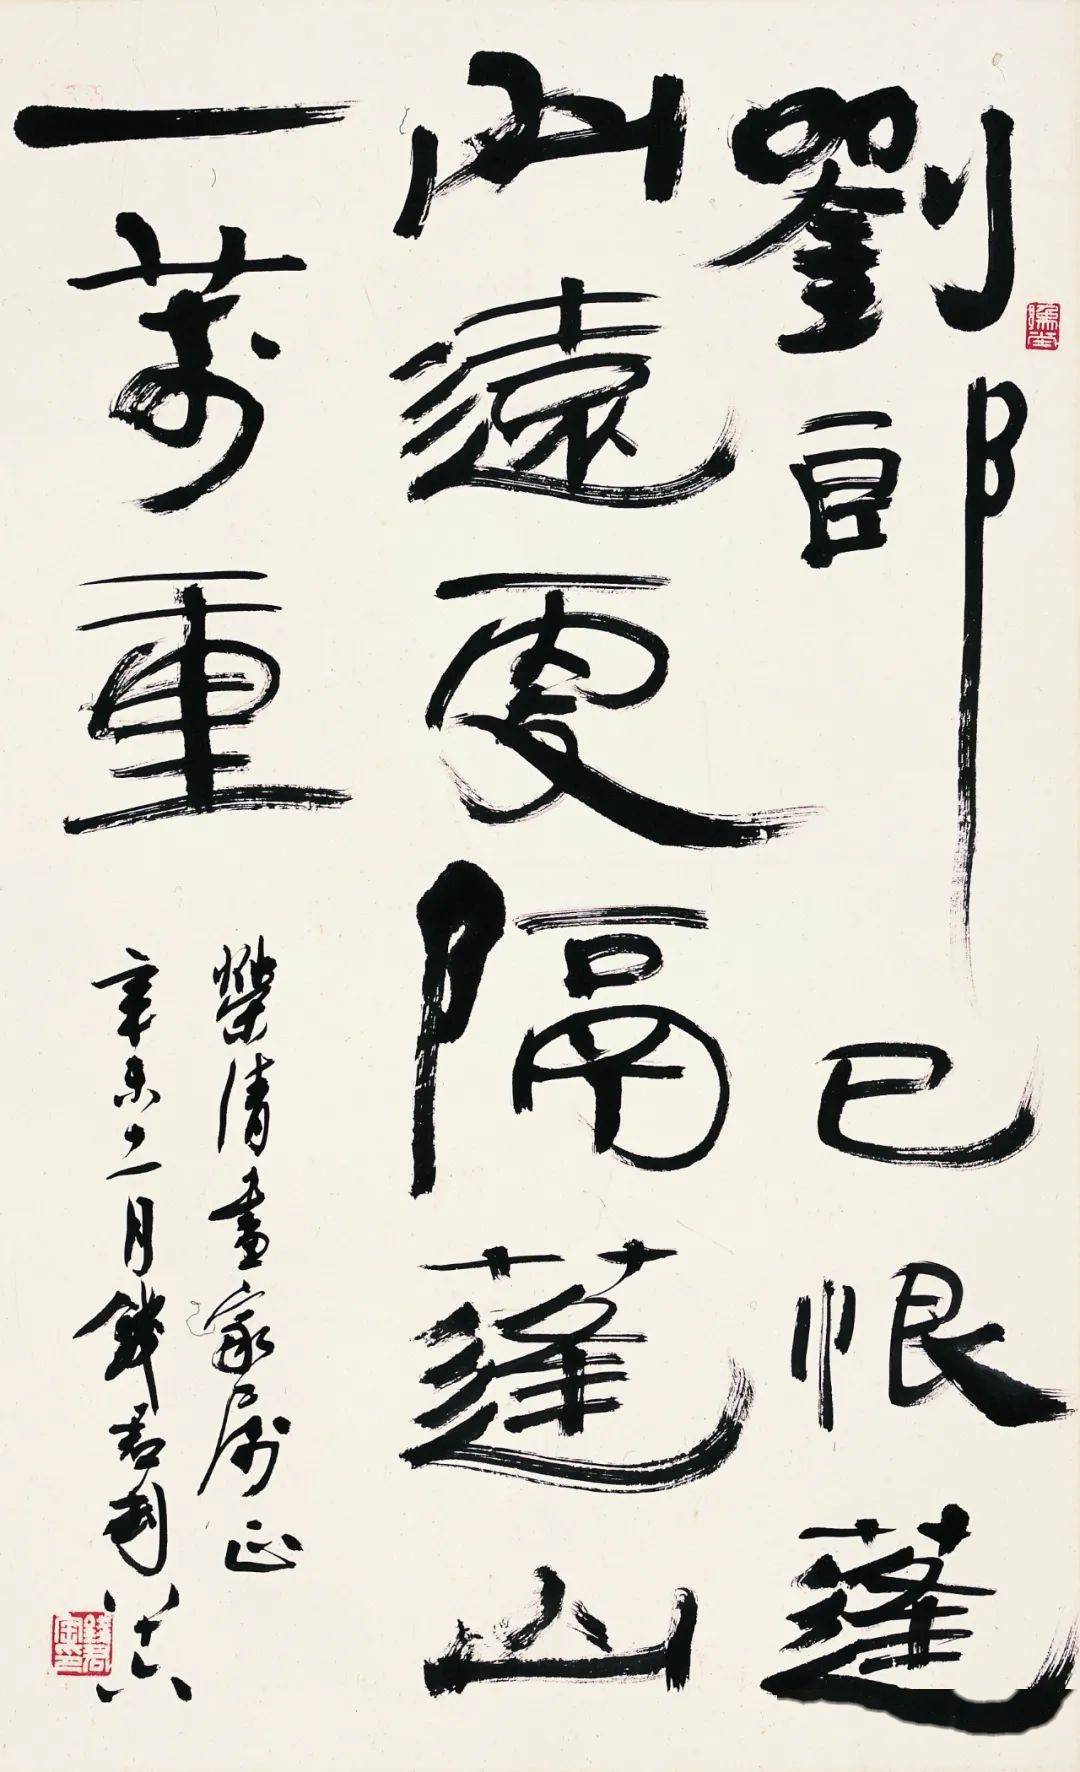 劉郎已恨蓬
山遠更隔蓬山
一萬重
榮清畫家屬正
辛未二月錢君匋八十六